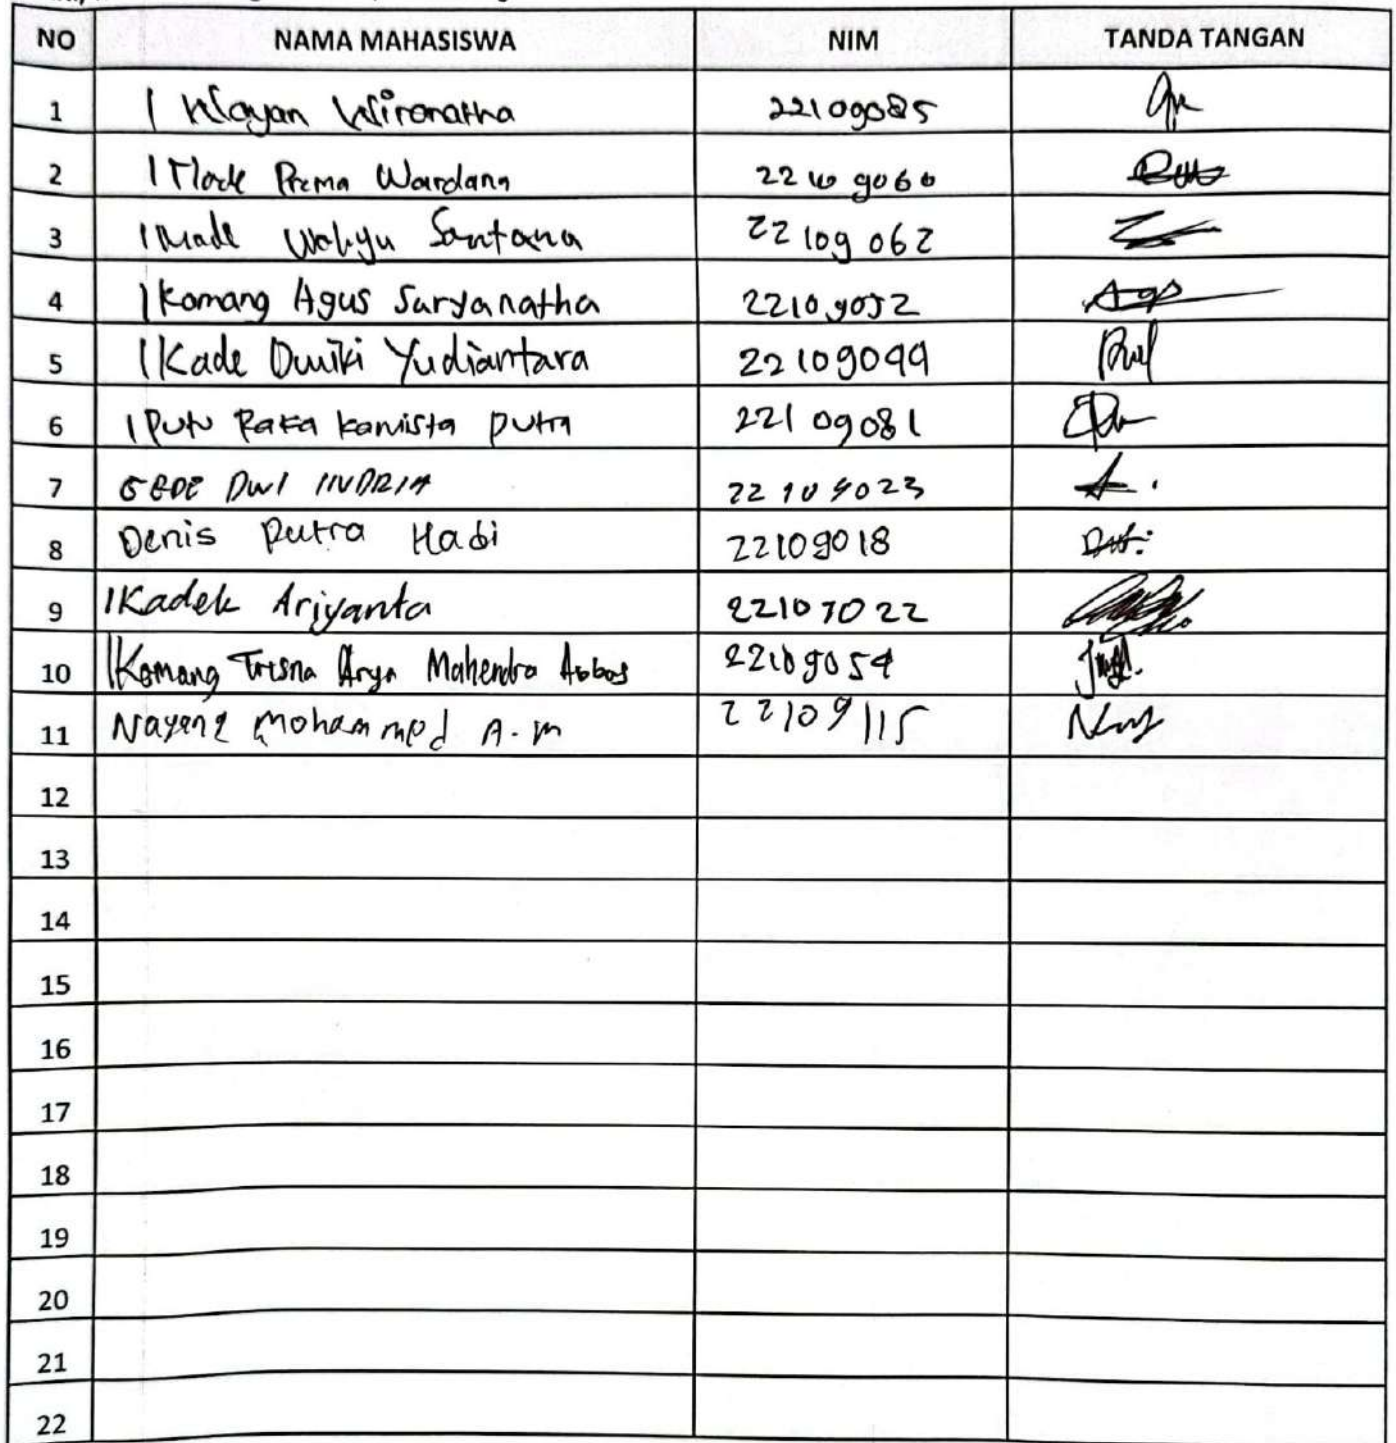 NO NAMA MAHASISWA NIM TANDA TANGAN
1 I Wayan Wiranatha 22109085
2 I Made Prema Wardana 22109060
3 I Made Wahyu Santana 22109062
4 I Komang Agus Suryanatha 22109052
5 I Kade Dwiki Yudiantara 22109099
6 I Putu Raka kamista putra 22109081
7 GEDE DWI INDRIA 22109023
8 Denis Putra Hadi 22109018
9 I Kadek Ariyanta 22109022
10 I Komang Trisna Arya Mahendra 22109054
11 Mohammed A.M 22109115
12
13
14
15
16
17
18
19
20
21
22